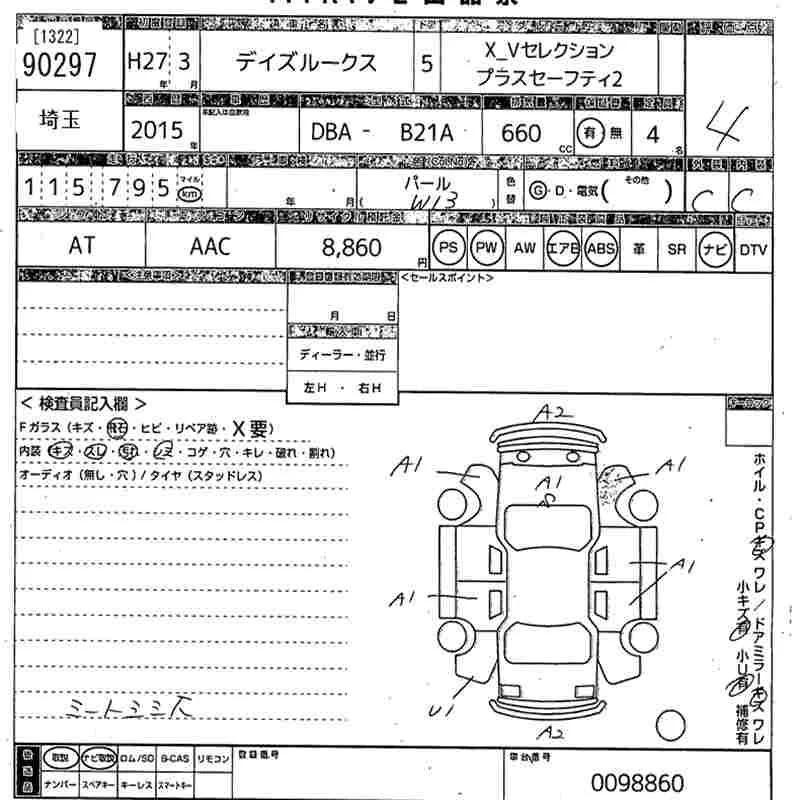 [1322]
90297
H27 3
年 月
デイズルークス
5
X_Vセレクション
プラスセーフティ2
埼玉
2015 年
DBA - B21A
660 CC
有 無
4 名
4
115,795
マイル
km
年 月
パール
( W13 )
色替
G・D・電気( その他 )
C C
AT
AAC
8,860 円
PS PW AW エアB ABS 革 SR ナビ DTV
<セールスポイント>
月 日
ディーラー・並行
左H ・ 右H
< 検査員記入欄 >
Fガラス (キズ・飛石・ヒビ・リペア跡・X要)
内装 (キズ・スレ・汚れ・シミ・コゲ・穴・キレ・破れ・割れ)
オーディオ (無し・穴) / タイヤ (スタッドレス)
A2
A1
A1
A1
A1
A1
U1
A2
ホイル・CPキズワレ/ドアミラーキズワレ
小キズ有 小U有 補修有
取説 ナビ取説 ロム/SD B-CAS リモコン
ナンバー スペアキー キーレス スマートキー
登録番号
車台番号
0098860